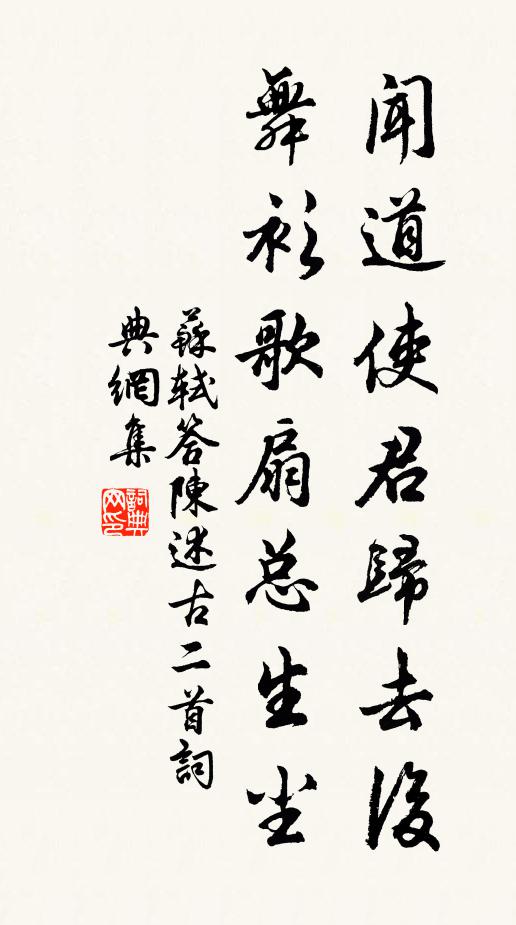 聞道使君歸去後
舞衫歌扇总生尘
蘇軾答陳述古二首詞
典網集
詞典
网印